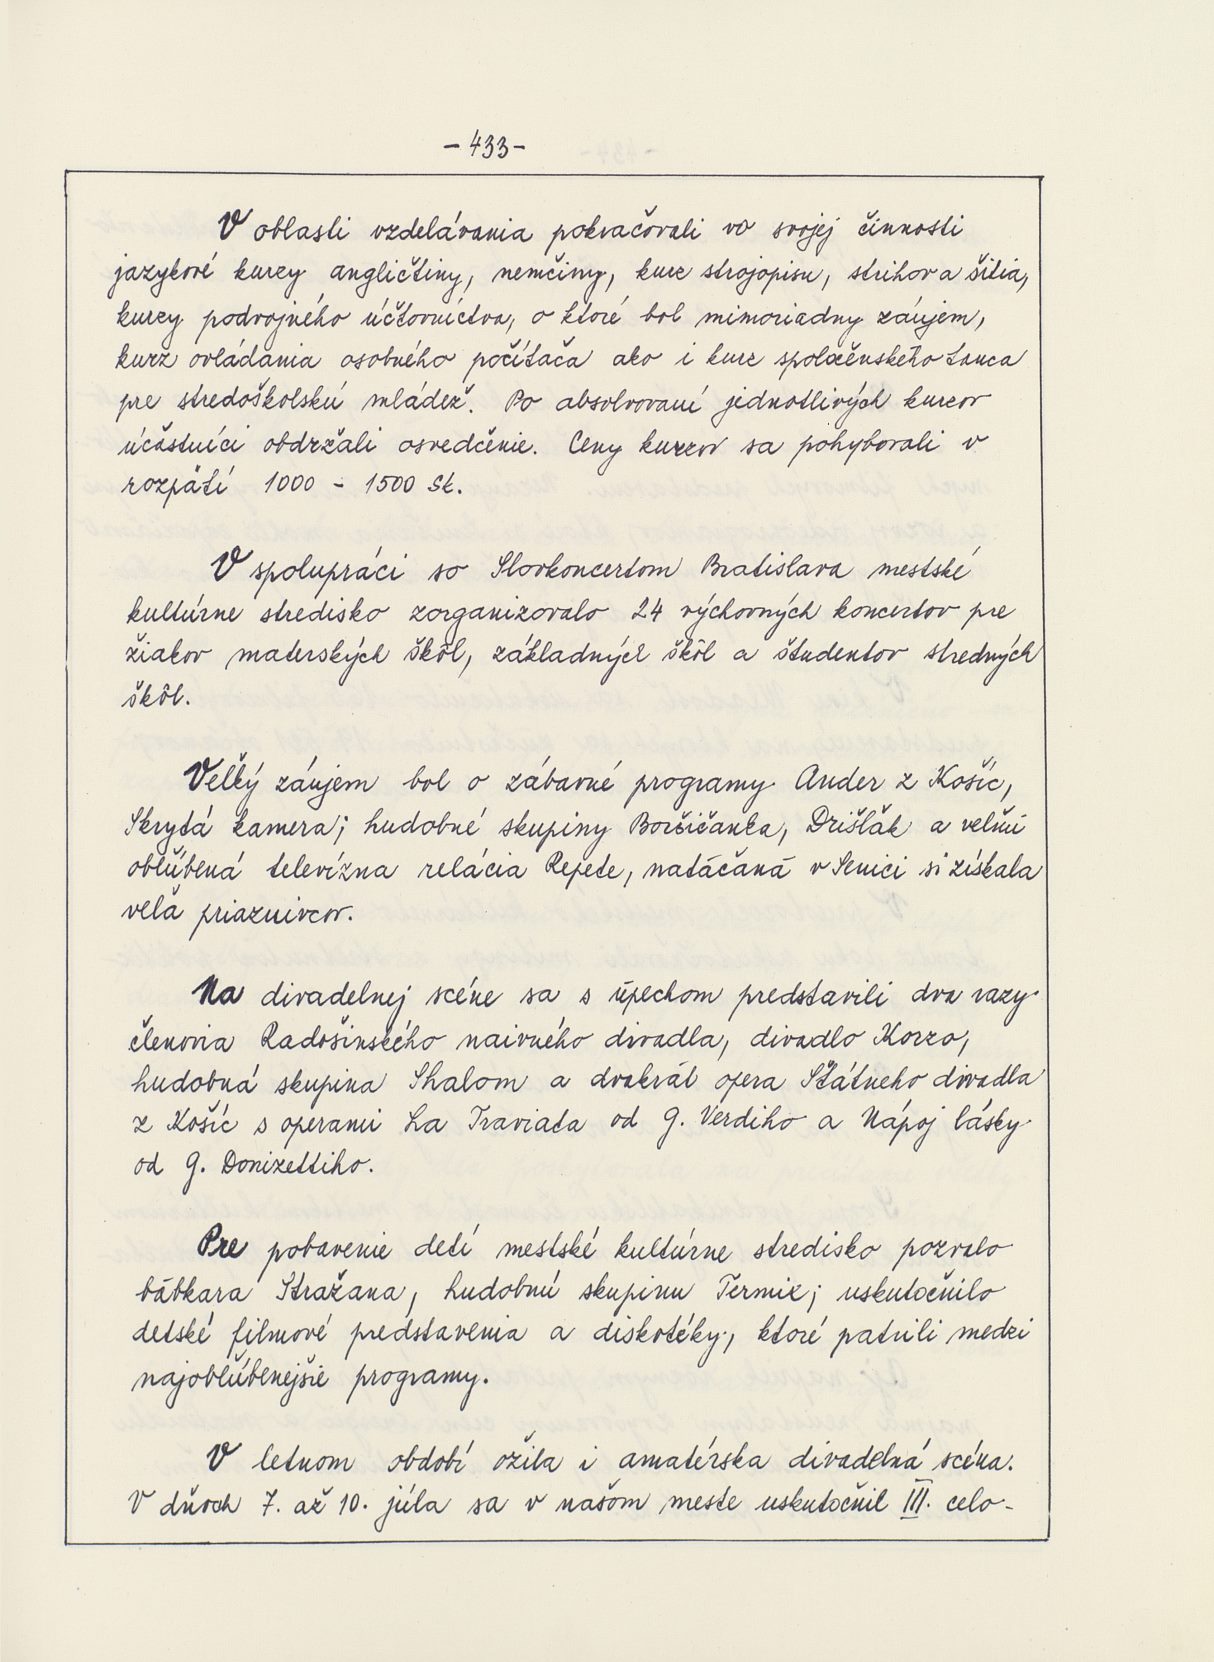 - 433 -
V oblasti vzdelávania pokračovali vo svojej činnosti
jazykové kurzy angličtiny, nemčiny, kurz strojopisu, strihov a šitia,
kurzy podvojného účtovníctva, o ktoré bol mimoriadny záujem,
kurz ovládania osobného počítača ako i kurz spoločenského tanca
pre stredoškolskú mládež. Po absolvovaní jednotlivých kurzov
účastníci obdržali osvedčenie. Ceny kurzov sa pohybovali v
rozpätí 1000 - 1500 Sk.
V spolupráci so Slovkoncertom Bratislava mestské
kultúrne stredisko zorganizovalo 24 výchovných koncertov pre
žiakov materských škôl, základných škôl a študentov stredných
škôl.
Veľký záujem bol o zábavné programy Ander z Košíc,
Skrytá kamera; hudobné skupiny Borčičanka, Drišľak a veľmi
obľúbená televízna relácia Repete, natáčaná v Senici si získala
veľa priaznivcov.
Na divadelnej scéne sa s úspechom predstavili dva razy
členovia Radošinského naivného divadla, divadlo Korzo,
hudobná skupina Shalom a dvakrát opera Štátneho divadla
z Košíc s operami La Traviata od G. Verdiho a Nápoj lásky
od G. Donizettiho.
Pre pobavenie detí mestské kultúrne stredisko pozvalo
bábkara Stražana, hudobnú skupinu Termix; uskutočnilo
detské filmové predstavenia a diskotéky, ktoré patrili medzi
najobľúbenejšie programy.
V letnom období ožila i amatérska divadelná scéna.
V dňoch 7. až 10. júla sa v našom meste uskutočnil III. celo-